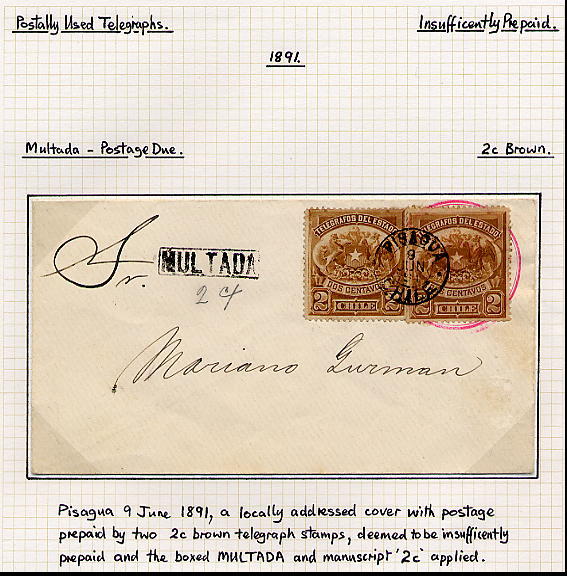 Postally Used Telegraphs. Insufficently Prepaid.
1891.
Multada - Postage Due. 2c Brown.
TELEGRAFOS DEL ESTADO TELEGRAFOS DEL ESTADO
PISAGUA
9
JUN
CHILE
Sr. MULTADA
2 c
DOS CENTAVOS CENTAVOS
2 CHILE 2 CHILE 2
Mariano Gurman
Pisagua 9 June 1891, a locally addressed cover with postage
prepaid by two 2c brown telegraph stamps, deemed to be insufficiently
prepaid and the boxed MULTADA and manuscript '2c' applied.